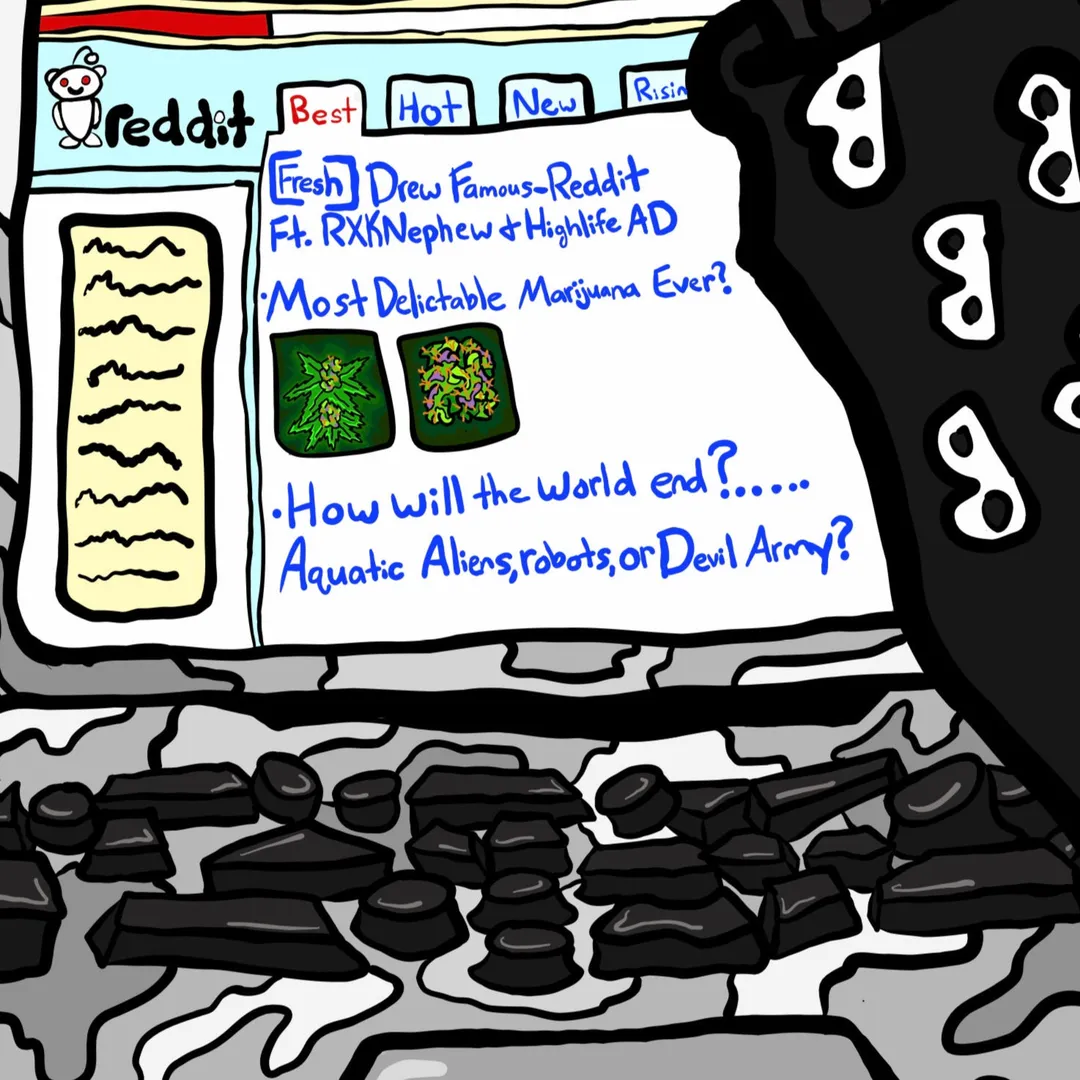 reddit
Best
Hot
New
Risin
[Fresh] Drew Famous-Reddit
Ft. RXKNephew & Highlife AD
·Most Delictable Marijuana Ever?
·How will the world end?.....
Aquatic Aliens, robots, or Devil Army?